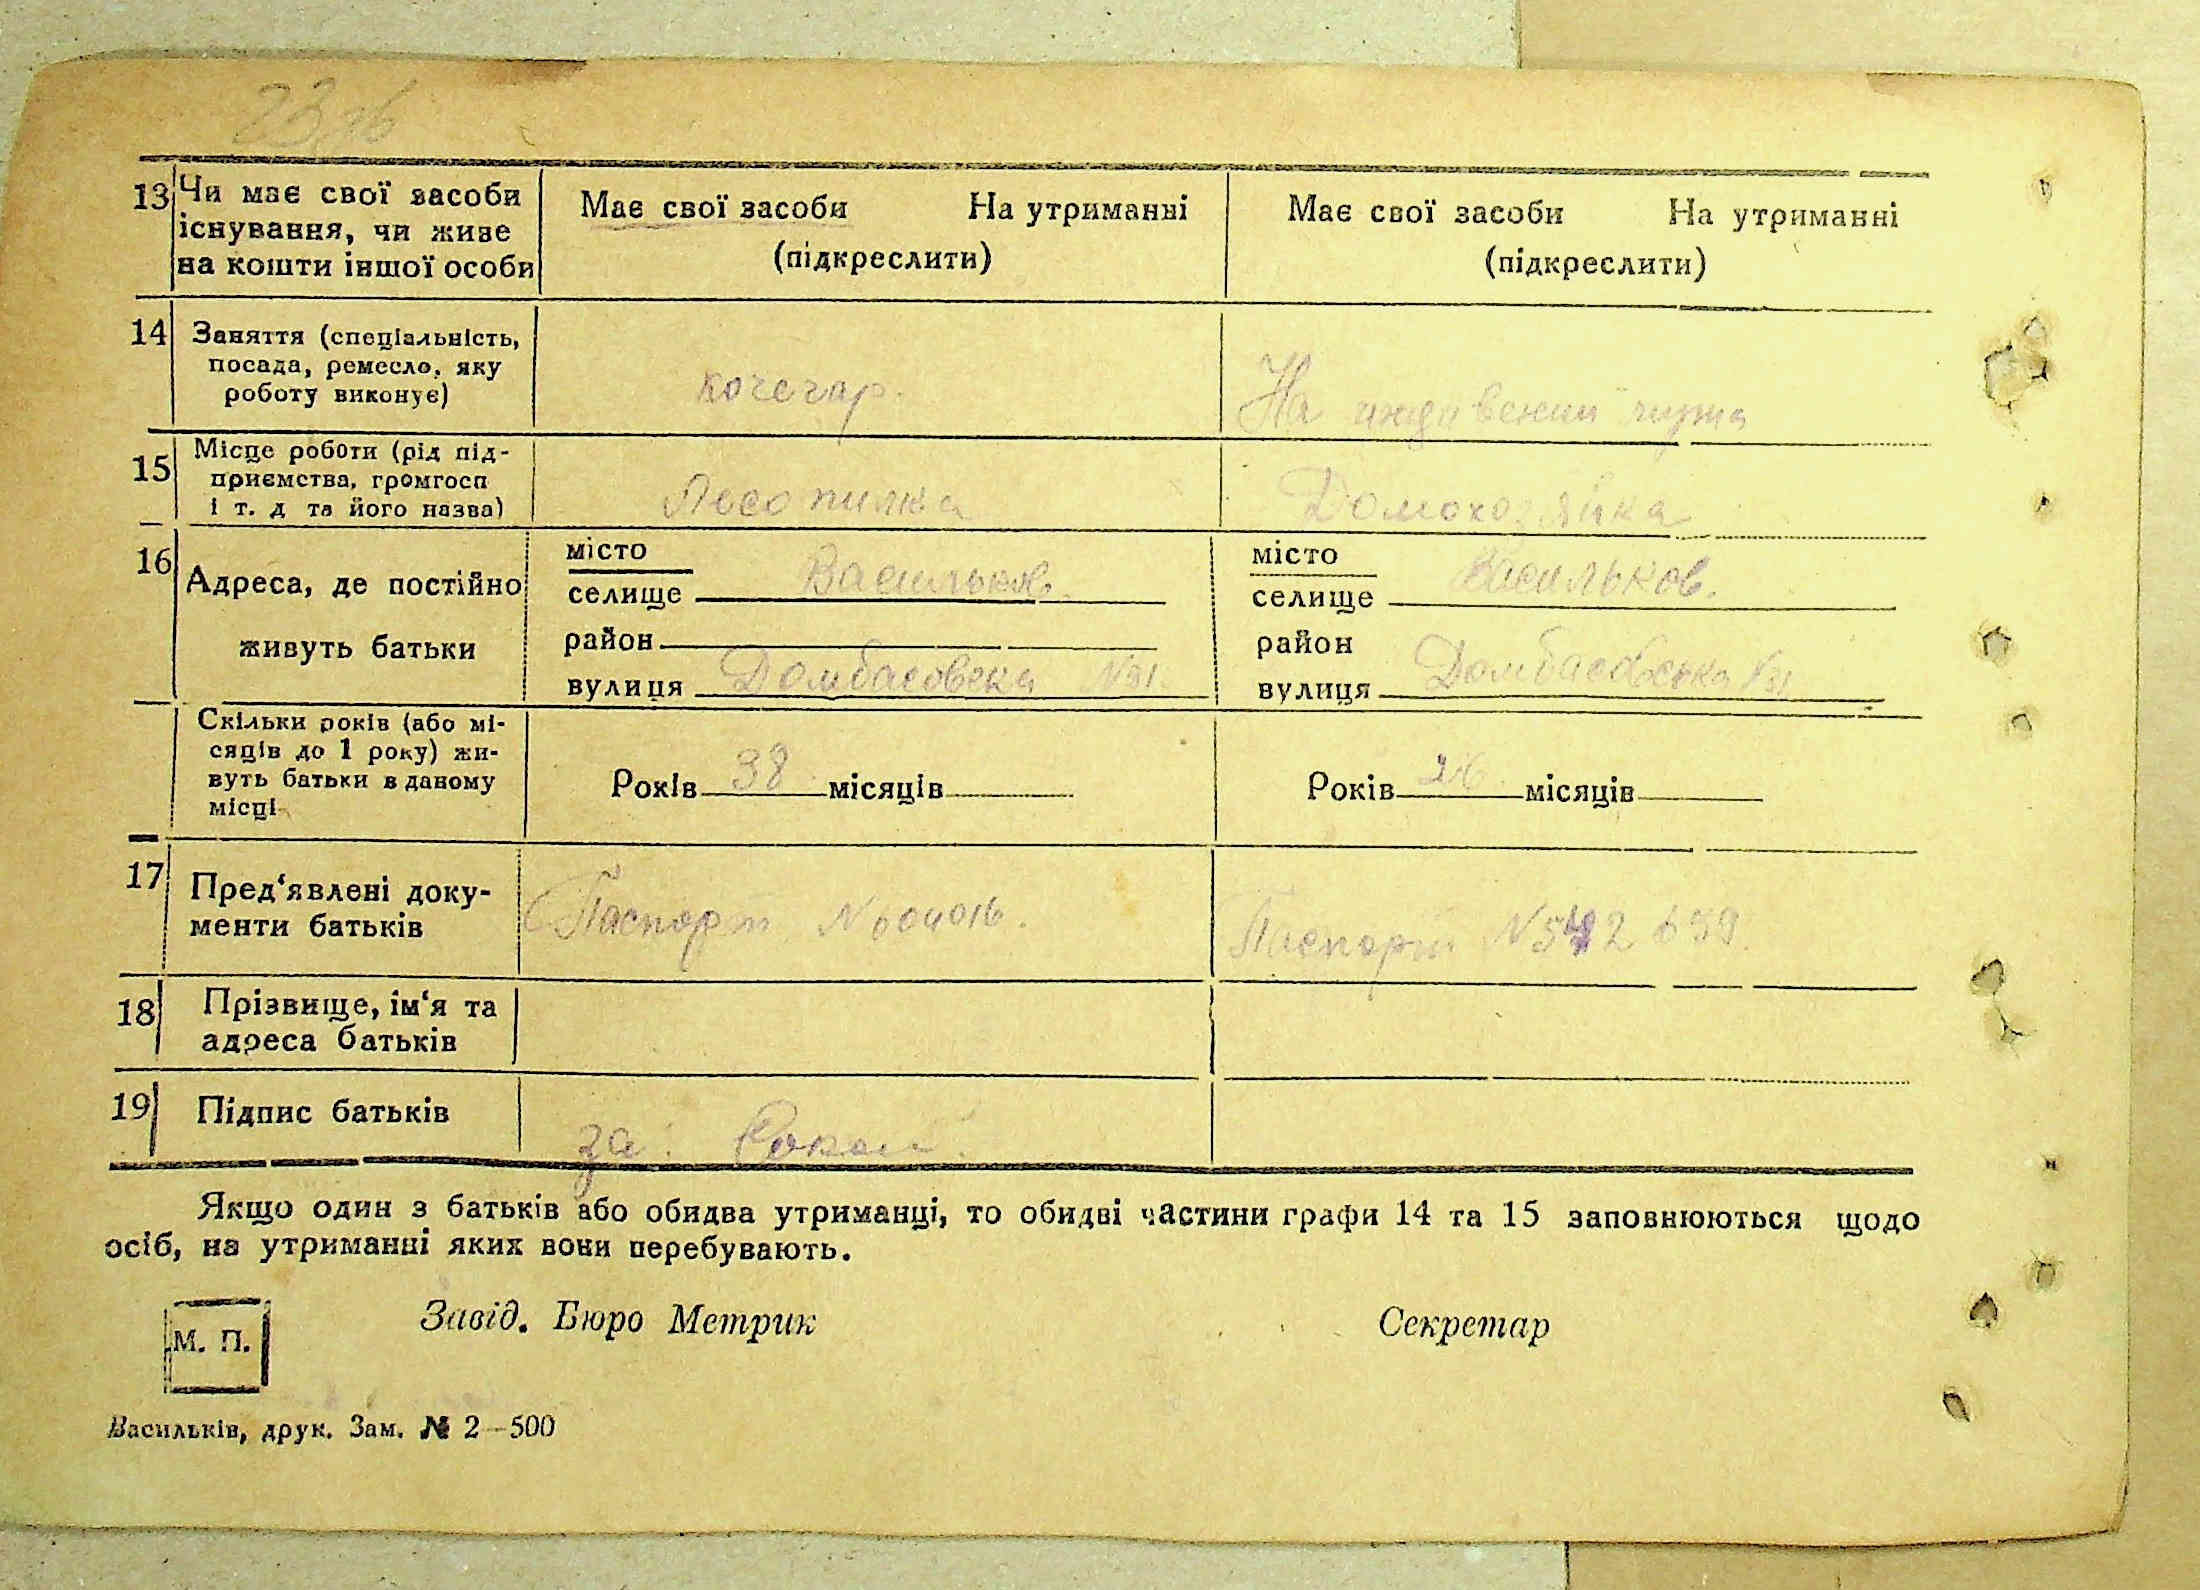 23 зв
13 Чи має свої засоби існування, чи живе на кошти іншої особи
Має свої засоби На утриманні
(підкреслити)
Має свої засоби На утриманні
(підкреслити)
14 Заняття (спеціальність,
посада, ремесло, яку
роботу виконує)
кочегар.
На иждивении мужа
15 Місце роботи (рід під-
приємства, громгосп
і т. д та його назва)
Лесопилка
Домохозяйка
16 Адреса, де постійно
живуть батьки
місто
селище Васильков.
район
вулиця Домбасовска №31.
місто
селище Васильков.
район
вулиця Домбасовська №31
Скільки років (або мі-
сяців до 1 року) жи-
вуть батьки в даному
місці
Років 38 місяців
Років 26 місяців
17 Пред‘явлені доку-
менти батьків
Паспорт №
Паспорт №
18 Прізвище, ім‘я та
адреса батьків
19 Підпис батьків
за
Якщо один з батьків або обидва утриманці, то обидві частини графи 14 та 15 заповнюються щодо
осіб, на утриманні яких вони перебувають.
М. П.
Завід. Бюро Метрик
Секретар
Васильків, друк. Зам. № 2—500